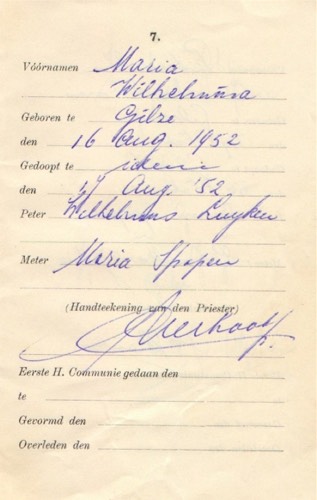 7.
Vóórnamen Maria
Wilhelmina
Geboren te Gilze
den 16 Aug. 1952
Gedoopt te idem
den 17 Aug. '52
Peter Wilhelmus Luyken
Meter Maria Spapen
(Handteekening van den Priester)
Eerste H. Communie gedaan den
te
Gevormd den
Overleden den